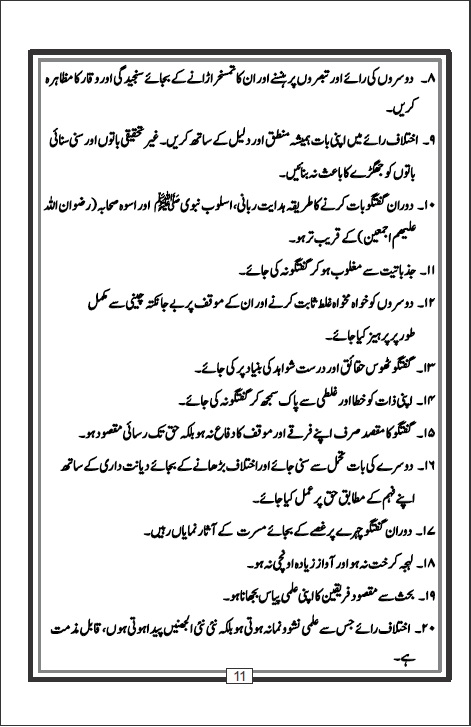 ۸۔ دوسروں کی رائے اور تبصروں پر ہنسنے اور ان کا تمسخر اڑانے کے بجائے سنجیدگی اور وقار کا مظاہرہ
کریں۔
۹۔ اختلاف رائے میں اپنی بات ہمیشہ منطق اور دلیل کے ساتھ کریں۔ غیر تحقیقی باتوں اور سنی سنائی
باتوں کو جھگڑے کا باعث نہ بنائیں۔
۱۰۔ دوران گفتگو بات کرنے کا طریقہ ہدایت ربانی، اسلوب نبوی ﷺ اور اسوہ صحابہ (رضوان اللہ
علیھم اجمعین) کے قریب تر ہو۔
۱۱۔ جذباتیت سے مغلوب ہو کر گفتگو نہ کی جائے۔
۱۲۔ دوسروں کو خواہ مخواہ غلط ثابت کرنے اور ان کے موقف پر بے جا نکتہ چینی سے مکمل
طور پر پرہیز کیا جائے۔
۱۳۔ گفتگو ٹھوس حقائق اور درست شواہد کی بنیاد پر کی جائے۔
۱۴۔ اپنی ذات کو خطا اور غلطی سے پاک سمجھ کر گفتگو نہ کی جائے۔
۱۵۔ گفتگو کا مقصد صرف اپنے فرقے اور موقف کا دفاع نہ ہو بلکہ حق تک رسائی مقصود ہو۔
۱۶۔ دوسرے کی بات تحمل سے سنی جائے اور اختلاف بڑھانے کے بجائے دیانت داری کے ساتھ
اپنے فہم کے مطابق حق پر عمل کیا جائے۔
۱۷۔ دوران گفتگو چہرے پر غصے کے بجائے مسرت کے آثار نمایاں رہیں۔
۱۸۔ لہجہ کرخت نہ ہو اور آواز زیادہ اونچی نہ ہو۔
۱۹۔ بحث سے مقصود فریقین کا اپنی علمی پیاس بجھانا ہو۔
۲۰۔ اختلاف رائے جس سے علمی نشوونما نہ ہوتی ہو بلکہ نئی نئی الجھنیں پیدا ہوتی ہوں، قابل مذمت
ہے۔
11